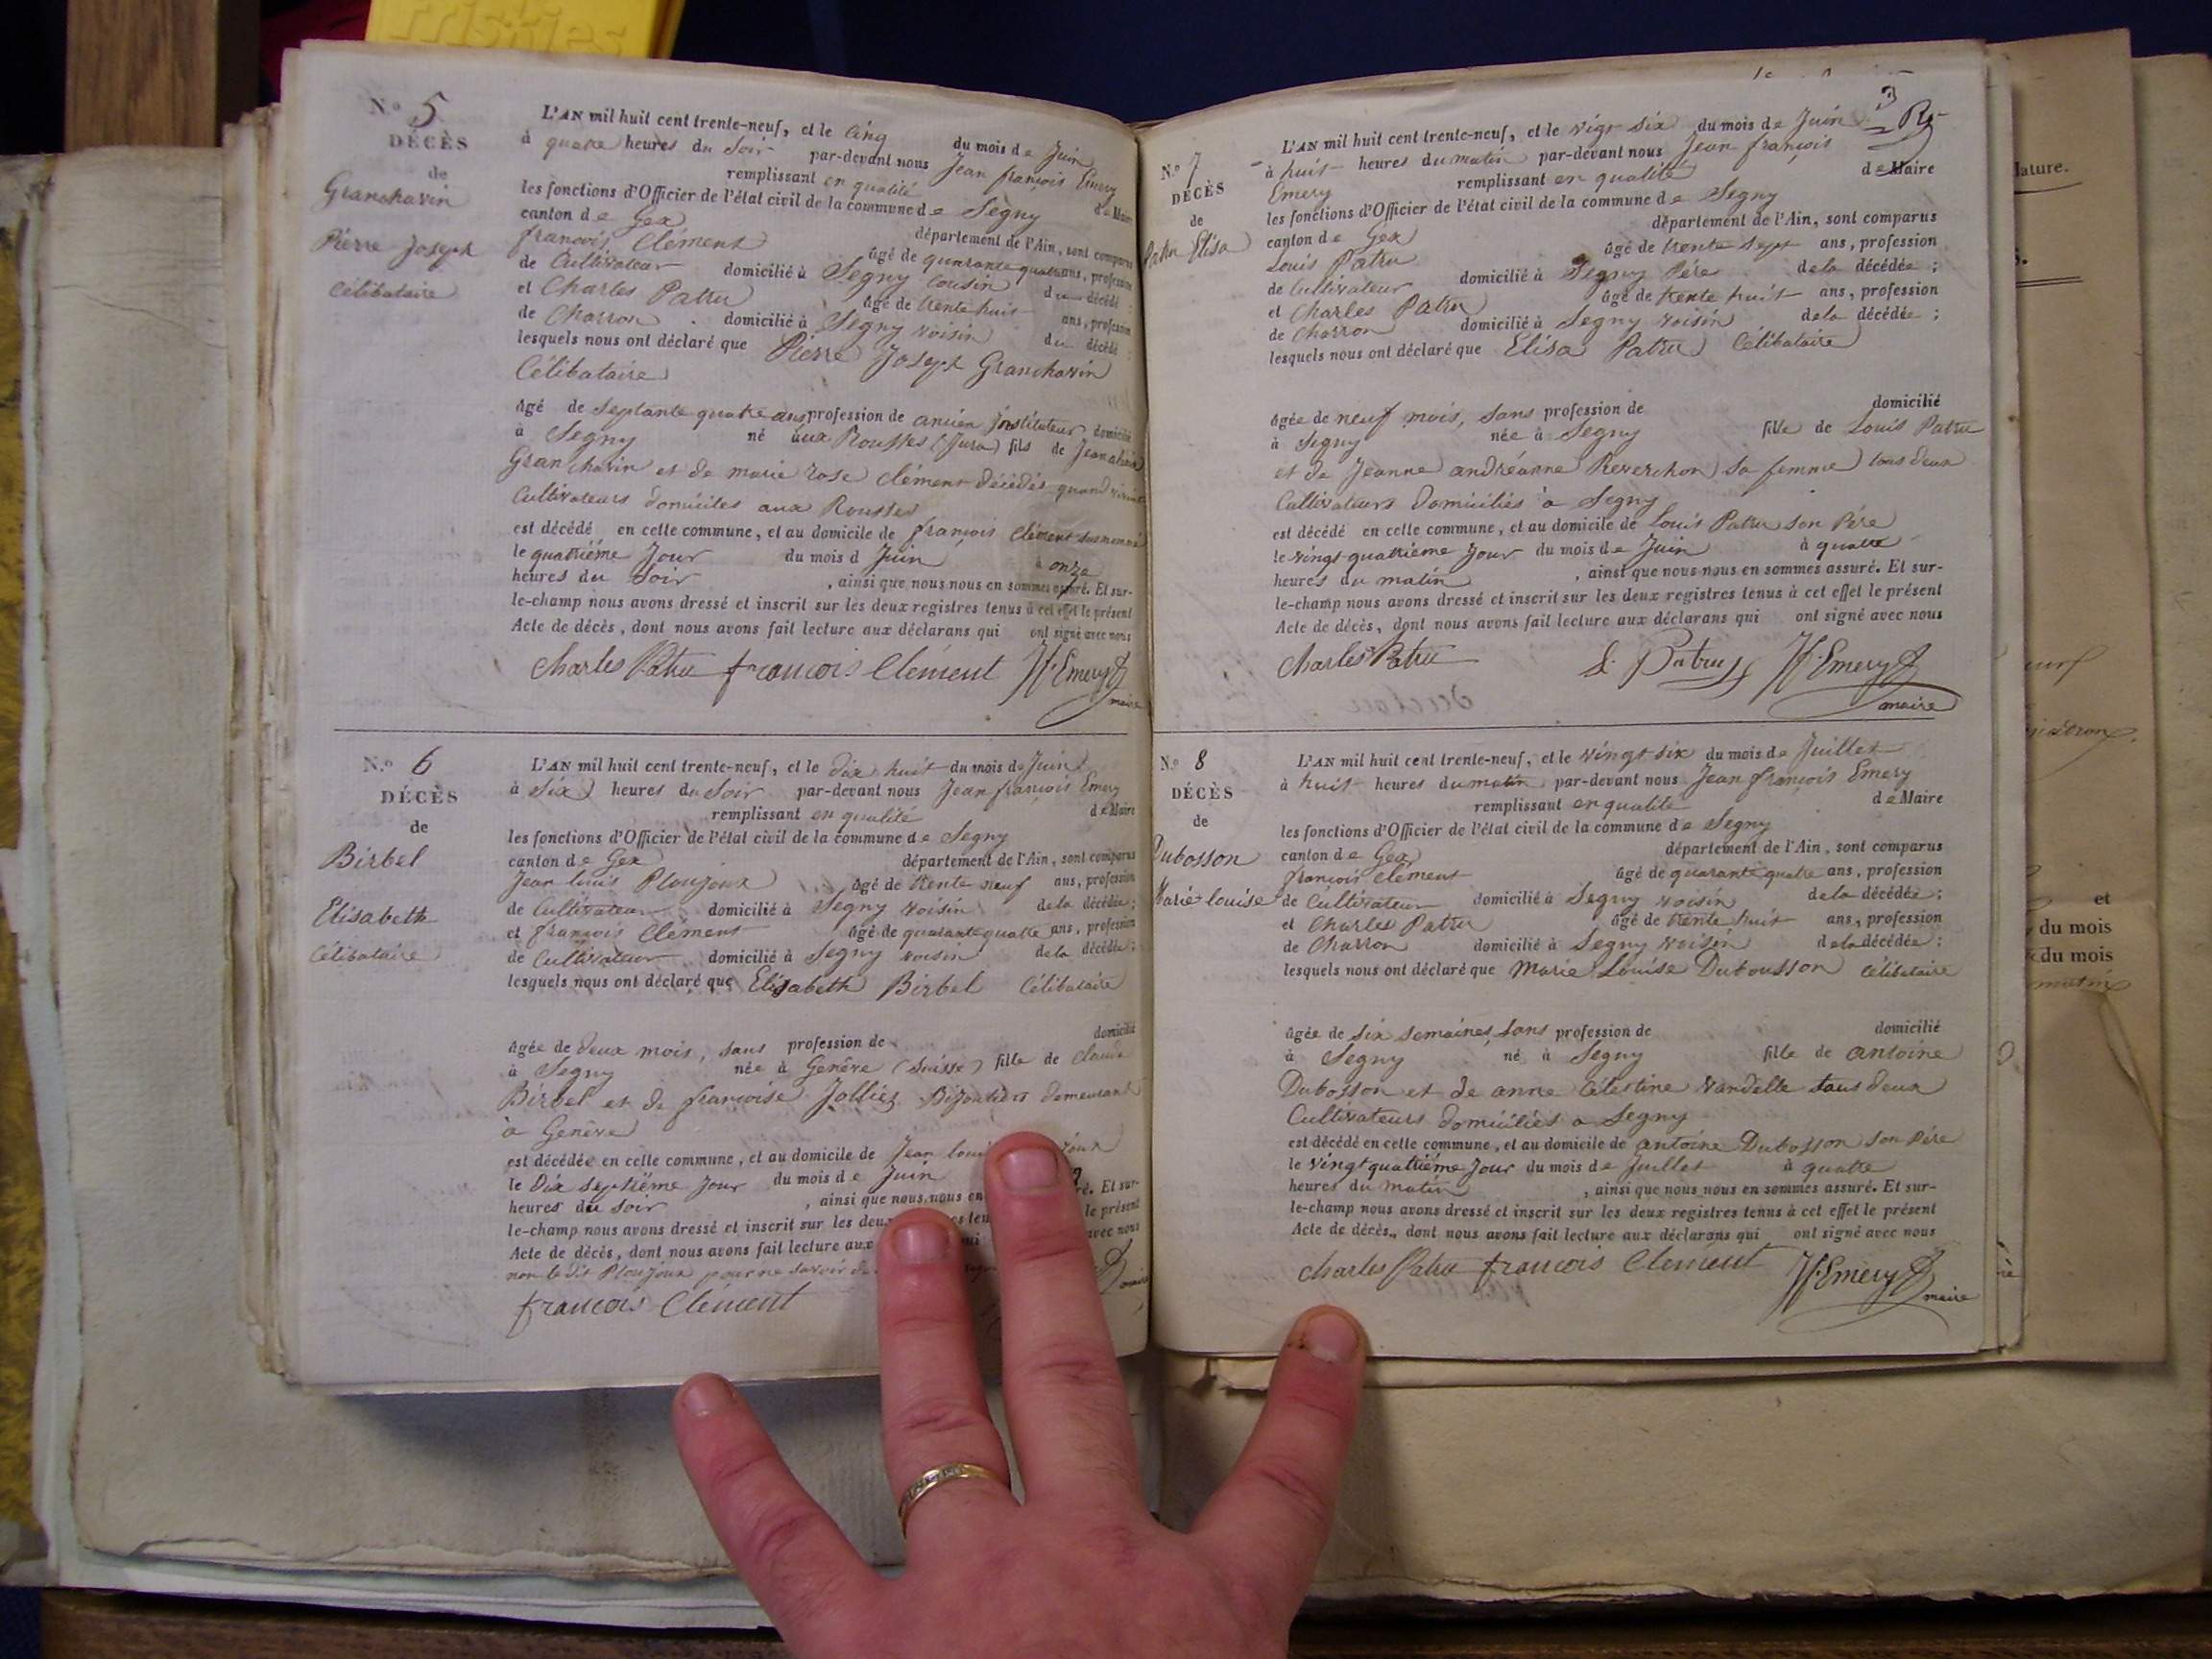 friskies
N.º 5
DÉCÈS
de
Granchavin
Pierre Joseph
Célibataire
L'AN mil huit cent trente-neuf, et le Cinq du mois de Juin
à quatre heures du Soir par-devant nous Jean françois Emery
remplissant en qualité de Maire
les fonctions d'Officier de l'état civil de la commune de Segny
canton de Gex département de l'Ain, sont comparus
françois Clément âgé de quarante quatre ans, profession
de Cultivateur domicilié à Segny cousin du décédé ;
et Charles Patru âgé de trente huit ans, profession
de Charron domicilié à Segny voisin du décédé ;
lesquels nous ont déclaré que Pierre Joseph Granchavin
Célibataire
âgé de Septante quatre ans profession de ancien instituteur domicilié
à Segny né aux Rousses (Jura) fils de Jean
Granchavin et de marie rose Clément décédés quand
Cultivateurs domiciles aux Rousses
est décédé en cette commune, et au domicile de françois Clément susnommé
le quatriéme Jour du mois d Juin à onze
heures du Soir , ainsi que nous nous en sommes assuré. Et sur-
le-champ nous avons dressé et inscrit sur les deux registres tenus à cet effet le présent
Acte de décès, dont nous avons fait lecture aux déclarans qui ont signé avec nous
Charles Patru françois Clément Emery
maire
N.º 6
DÉCÈS
de
Birbel
Elisabeth
Célibataire
L'AN mil huit cent trente-neuf, et le dix huit du mois de Juin
à Six heures du Soir par-devant nous Jean françois Emery
remplissant en qualité de Maire
les fonctions d'Officier de l'état civil de la commune de Segny
canton de Gex département de l'Ain, sont comparus
Jean louis Ploujoux âgé de trente neuf ans, profession
de Cultivateur domicilié à Segny voisin de la décédée ;
et françois Clément âgé de quarante quatre ans, profession
de Cultivateur domicilié à Segny voisin de la décédée ;
lesquels nous ont déclaré que Elisabeth Birbel Célibataire
âgée de deux mois, sans profession de domicilié
à Segny née à Genève (Suisse) fille de Claude
Birbel et de françoise Jolliez Bijoutiers demeurant
à Genève
est décédée en cette commune, et au domicile de Jean loui
le Dix septiéme Jour du mois de Juin
heures du soir , ainsi que nous nous en Et sur-
le-champ nous avons dressé et inscrit sur les deux le présent
Acte de décès, dont nous avons fait lecture aux avec nous
non le dit Ploujoux pour ne savoir
françois Clément
3
N.º 7
DÉCÈS
de
Patru Elisa
L'AN mil huit cent trente-neuf, et le vigt six du mois de Juin
à huit heures du matin par-devant nous Jean françois
Emery remplissant en qualité de Maire
les fonctions d'Officier de l'état civil de la commune de Segny
canton de Gex département de l'Ain, sont comparus
Louis Patru âgé de trente sept ans, profession
de Cultivateur domicilié à Segny Père de la décédée ;
et Charles Patru âgé de trente huit ans, profession
de Charron domicilié à Segny voisin de la décédée ;
lesquels nous ont déclaré que Elisa Patru Célibataire
âgée de neuf mois, sans profession de domicilié
à Segny née à Segny fille de Louis Patru
et de Jeanne andréanne Reverchon sa femme tous deux
Cultivateurs domiciliés à Segny
est décédé en cette commune, et au domicile de Louis Patru son Père
le vingt quatriéme Jour du mois de Juin à quatre
heures du matin , ainsi que nous nous en sommes assuré. Et sur-
le-champ nous avons dressé et inscrit sur les deux registres tenus à cet effet le présent
Acte de décès, dont nous avons fait lecture aux déclarans qui ont signé avec nous
Charles Patru L. Patru Emery
maire
N.º 8
DÉCÈS
de
Dubosson
Marie louise
L'AN mil huit cent trente-neuf, et le vingt six du mois de Juillet
à huit heures du matin par-devant nous Jean françois Emery
remplissant en qualité de Maire
les fonctions d'Officier de l'état civil de la commune de Segny
canton de Gex département de l'Ain, sont comparus
françois Clément âgé de quarante quatre ans, profession
de Cultivateur domicilié à Segny voisin de la décédée ;
et Charles Patru âgé de trente huit ans, profession
de Charron domicilié à Segny voisin de la décédée ;
lesquels nous ont déclaré que Marie Louise Dubousson Célibataire
âgée de Six Semaines, sans profession de domicilié
à Segny né à Segny fille de antoine
Dubosson et de anne Célestine Vandelle tous deux
Cultivateurs domiciliés a Segny
est décédé en cette commune, et au domicile de antoine Dubosson son Père
le Vingt quatriéme Jour du mois de Juillet à quatre
heures du matin , ainsi que nous nous en sommes assuré. Et sur-
le-champ nous avons dressé et inscrit sur les deux registres tenus à cet effet le présent
Acte de décès, dont nous avons fait lecture aux déclarans qui ont signé avec nous
Charles Patru françois Clément Emery
maire
et
du mois
du mois
matin